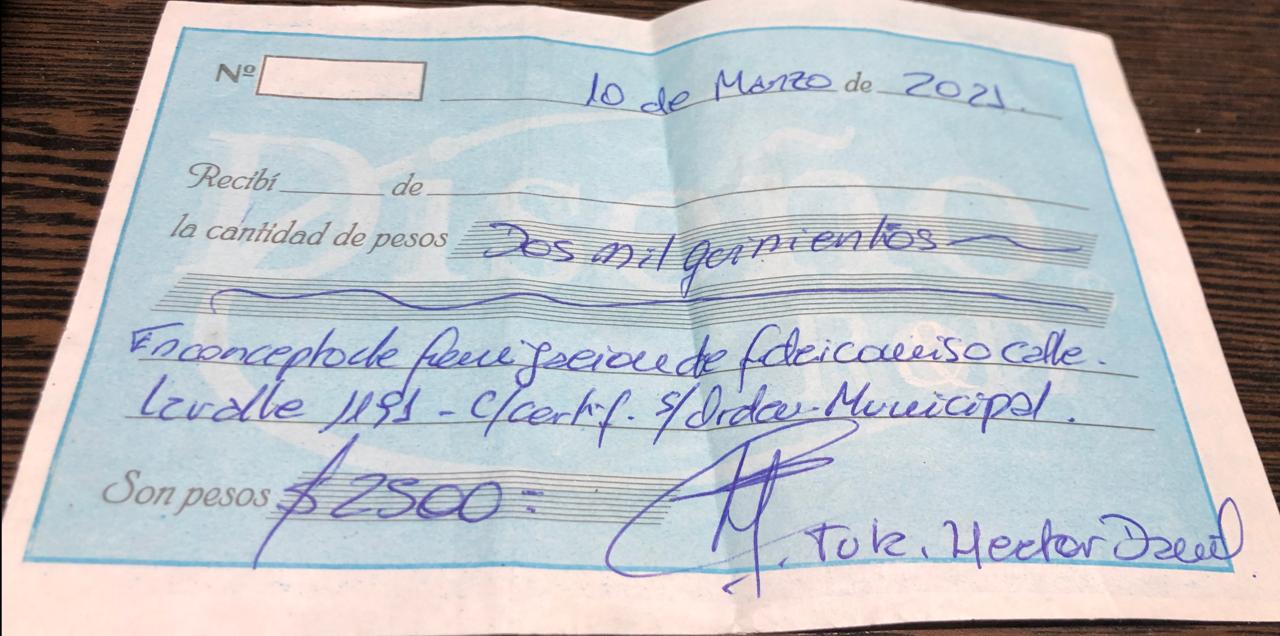 Nº
10 de Marzo de 2021.
Recibí de
la cantidad de pesos Dos mil quinientos
En concepto de fumigacion de fideicomiso calle.
Lavalle 1191 - C/certif. S/Orden-Municipal.
Son pesos $2500=
Tok. Hector